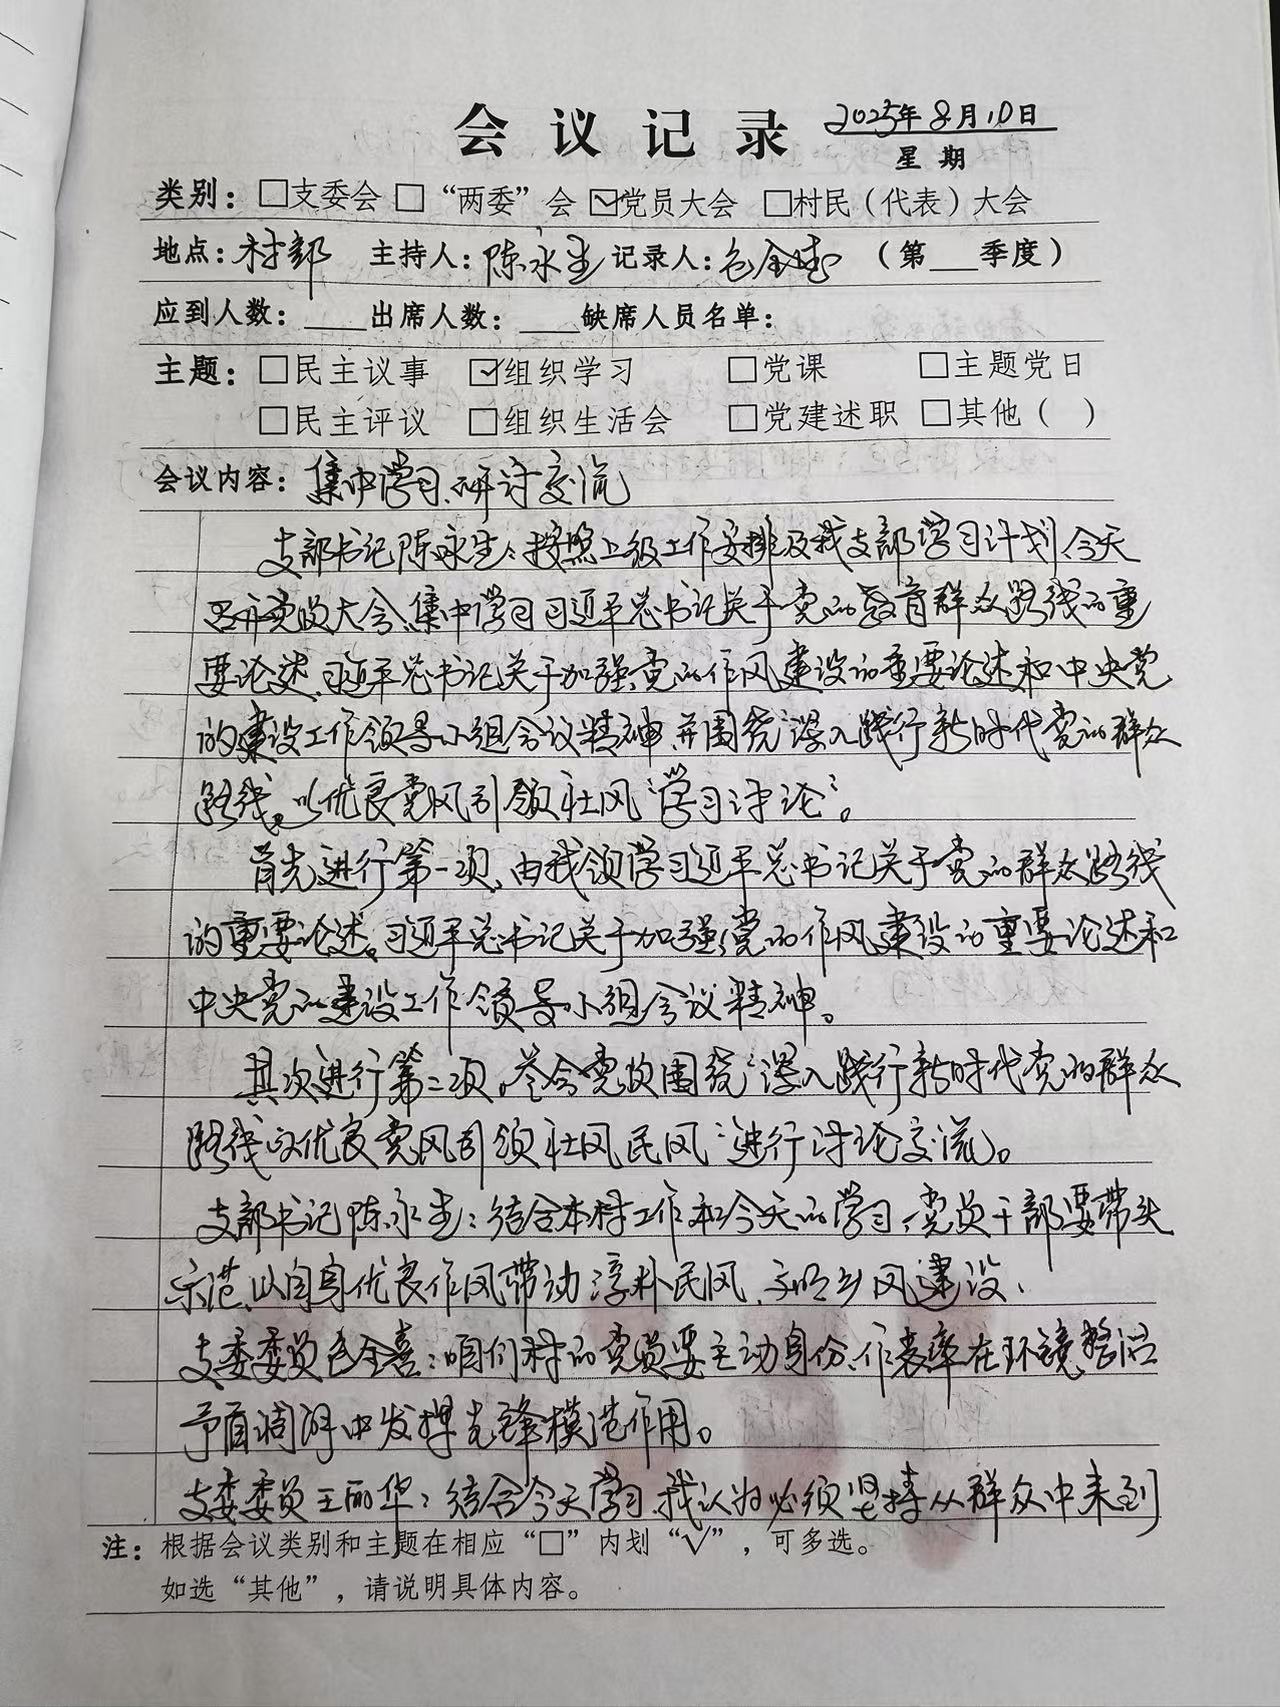 会议记录 2025年8月10日
星期
类别：□支委会 □“两委”会 ☑党员大会 □村民（代表）大会
地点：村部 主持人：陈永生 记录人：包全喜 （第___季度）
应到人数：____出席人数：____缺席人员名单：
主题：□民主议事 ☑组织学习 □党课 □主题党日
□民主评议 □组织生活会 □党建述职 □其他（ ）
会议内容：集中学习、研讨交流
支部书记陈永生：按照上级工作安排及我支部学习计划、今天
召开党员大会、集中学习习近平总书记关于党的教育群众路线的重
要论述、习近平总书记关于加强党的作风建设的重要论述和中央党
的建设工作领导小组会议精神、并围绕“深入践行新时代党的群众
路线。以优良党风引领社风“学习讨论”。
首先进行第一项、由我领学习近平总书记关于党的群众路线
的重要论述。习近平总书记关于加强党的作风建设的重要论述和
中央党的建设工作领导小组会议精神。
其次进行第二项。参会党员围绕“深入践行新时代党的群众
路线以优良党风引领社风民风”进行讨论交流。
支部书记陈永生：结合本村工作和今天的学习，党员干部要带头
示范、以自身优良作风带动淳朴民风、文明乡风建设、
支委委员包全喜：咱们村的党员要主动身份、作表率在环境整治
矛盾调解中发挥先锋模范作用。
支委委员王丽华：结合今天学习、我认为必须坚持从群众中来到
注：根据会议类别和主题在相应“□”内划“√”，可多选。
如选“其他”，请说明具体内容。